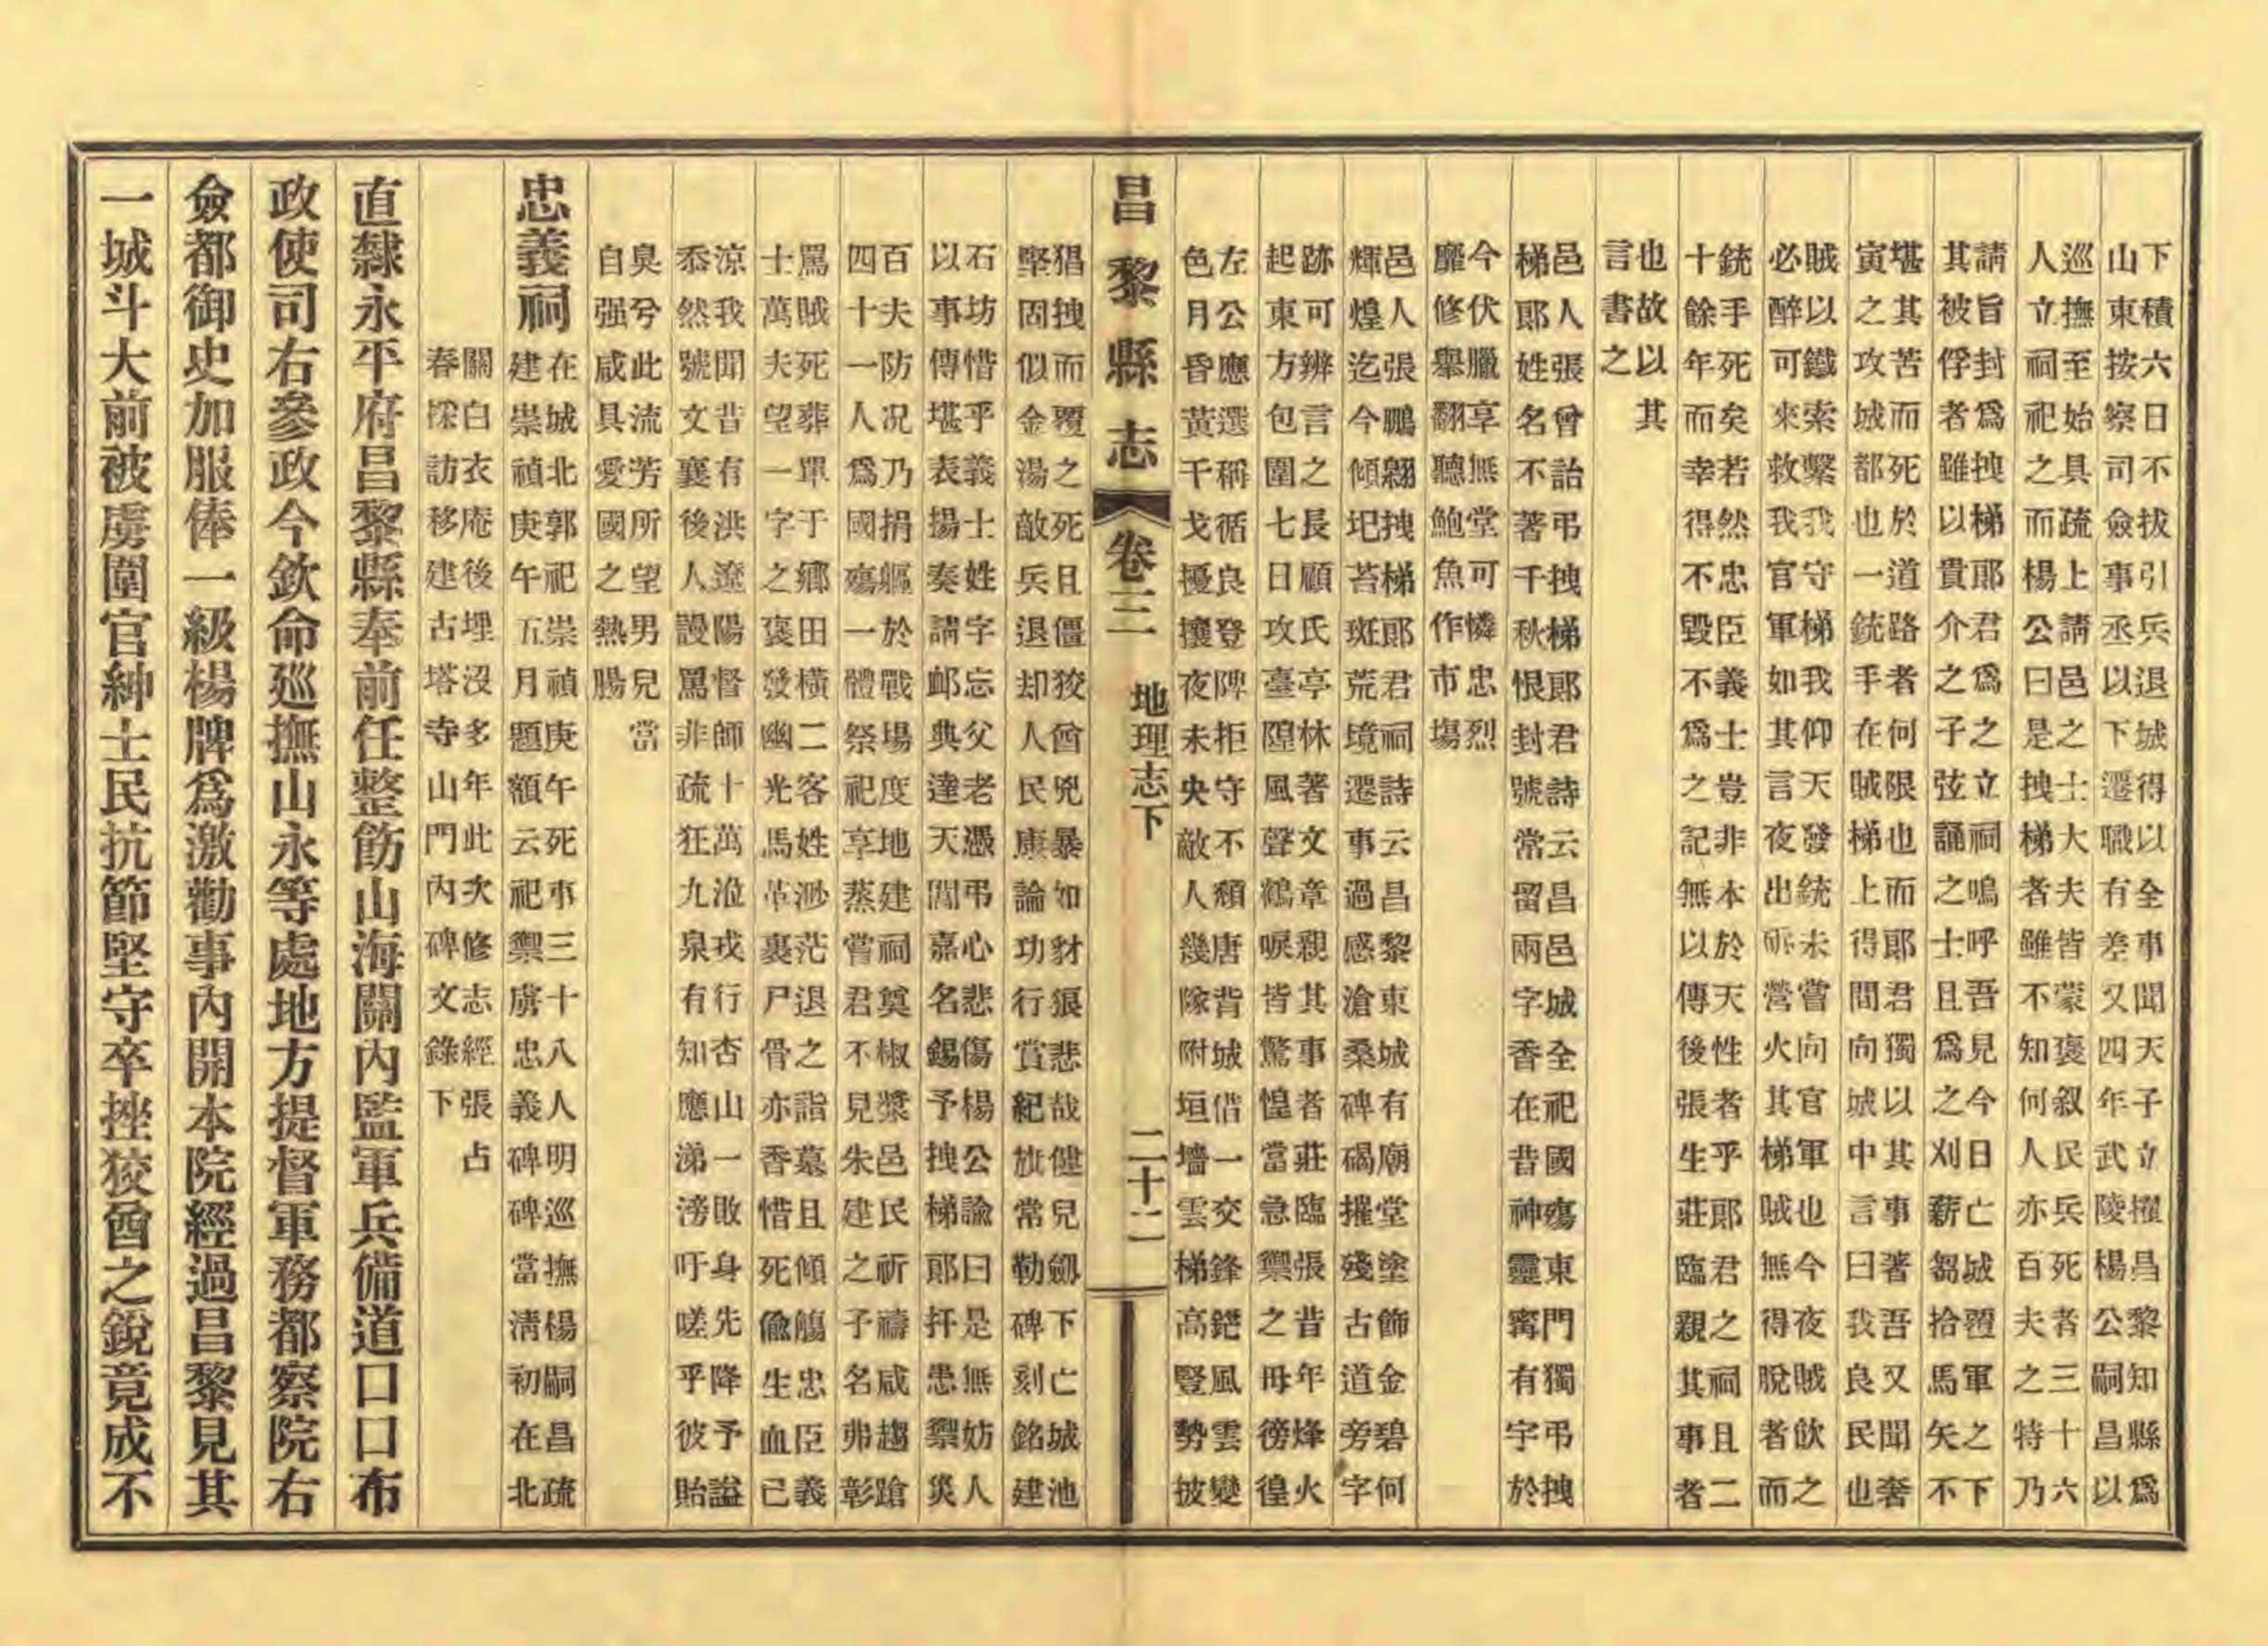 下積六日不拔引兵退城得以全事聞天子立擢昌黎知縣爲
山東按察司僉事丞以下遷職有差又四年武陵楊公嗣昌以
巡撫至始具疏上請邑之士大夫皆蒙褒叙民兵死者三十六
人立祠祀之而楊公曰是拽梯者雖不知何人亦百夫之特乃
請旨封爲拽梯郎君爲之立祠嗚呼吾見今日亡城覆軍之下
其被俘者雖以貴介之子弦誦之士且爲之刈薪芻拾馬矢不
堪其苦而死於道路者何限也而郎君獨以其事著吾又聞奢
寅之攻城都也一銃手在賊梯上得間向城中言曰我良民也
賊以鐵索繫我守梯我仰天發銃未嘗向官軍也今夜賊飲之
必醉可來救我官軍如其言夜出斫營火其梯賊無得脫者而
銃手死矣若然忠臣義士豈非本於天性者乎郎君之祠且二
十餘年而幸得不毀不爲之記無以傳後張生莊臨親其事者
也故以其
言書之
邑人張曾詒弔拽梯郎君詩云昌邑城全祀國殤東門獨弔拽
梯郎姓名不著千秋恨封號常留兩字香在昔神靈寗有宇於
今伏臘享無堂可憐忠烈
靡修舉翻聽鮑魚作市塲
邑人張鵬翱拽梯郎君祠詩云昌黎東城有廟堂塗飾金碧何
輝煌迄今傾圮苔斑荒境遷事過感滄桑碑碣摧殘古道旁字
跡可辨言之長顧氏亭林著文章親其事者莊臨張昔年烽火
起東方包圍七日攻臺隍風聲鶴唳皆驚惶當急禦之毋徬徨
左公應選稱循良登陴拒守不頹唐背城借一交鋒鋩風雲變
色月昏黃干戈擾攘夜未央敵人幾隊附垣墻雲梯高豎勢披
昌黎縣志 卷三 地理志下 二十二
猖拽而覆之死且僵狡酋兇暴如豺狼悲哉健兒劒下亡城池
堅固似金湯敵兵退却人民康論功行賞紀旗常勒碑刻銘建
石坊惜乎義士姓字忘父老憑弔心悲傷楊公諭曰是無妨人
以事傳堪表揚奏請邮典達天閽嘉名錫予拽梯郎扞患禦災
百夫防况乃捐軀於戰場度地建祠奠椒漿邑民祈禱咸趨蹌
四十一人爲國殤一體祭祀享蒸嘗君不見朱建之子名弗彰
罵賊死葬單于鄉田橫二客姓渺茫退之詣墓且傾觴忠臣義
士萬夫望一字之褒發幽光馬革裹尸骨亦香惜死偸生血已
涼我聞昔有洪遼陽督師十萬涖戎行杏山一敗身先降予謚
忝然號文襄後人謾罵非疏狂九泉有知應涕滂吁嗟乎彼貽
臭兮此流芳所望男兒當
自强咸具愛國之熱腸
忠義祠 在城北郭祀崇禎庚午死事三十八人明巡撫楊嗣昌疏
建崇禎庚午五月題額云祀禦虜忠義碑碑當淸初在北
關白衣庵後埋沒多年此次修志經張占
春探訪移建古塔寺山門內碑文錄下
直隸永平府昌黎縣奉前任整飭山海關內監軍兵備道口口布
政使司右參政今欽命廵撫山永等處地方提督軍務都察院右
僉都御史加服俸一級楊牌爲激勸事內開本院經過昌黎見其
一城斗大前被虜圍官紳士民抗節堅守卒挫狡酋之銳竟成不